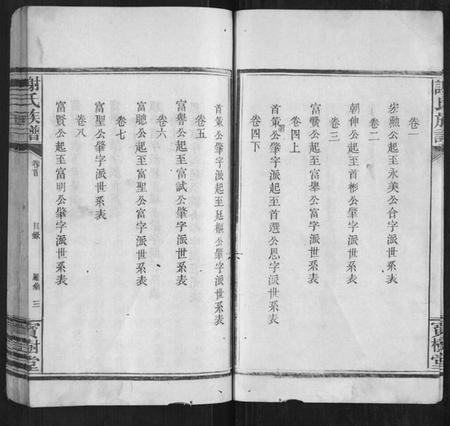 謝氏族譜
卷一
公起至永美公合字派世系表
卷二
朝伸公起至首彬公肇字派世系表
卷三
富公起至富舉公富字派世系表
卷四上
首策公肇字派起至首選公恩字派世系表
卷四下
首策公肇字派起至延公肇字派世系表
卷五
富譽公起至富試公肇字派世系表
卷六
富聰公起至富聖公富字派世系表
卷七
富聖公肇字派世系表
卷八
富賢公起至富明公肇字派世系表
謝氏族譜
卷首
目錄
三
寶樹堂
寶樹堂